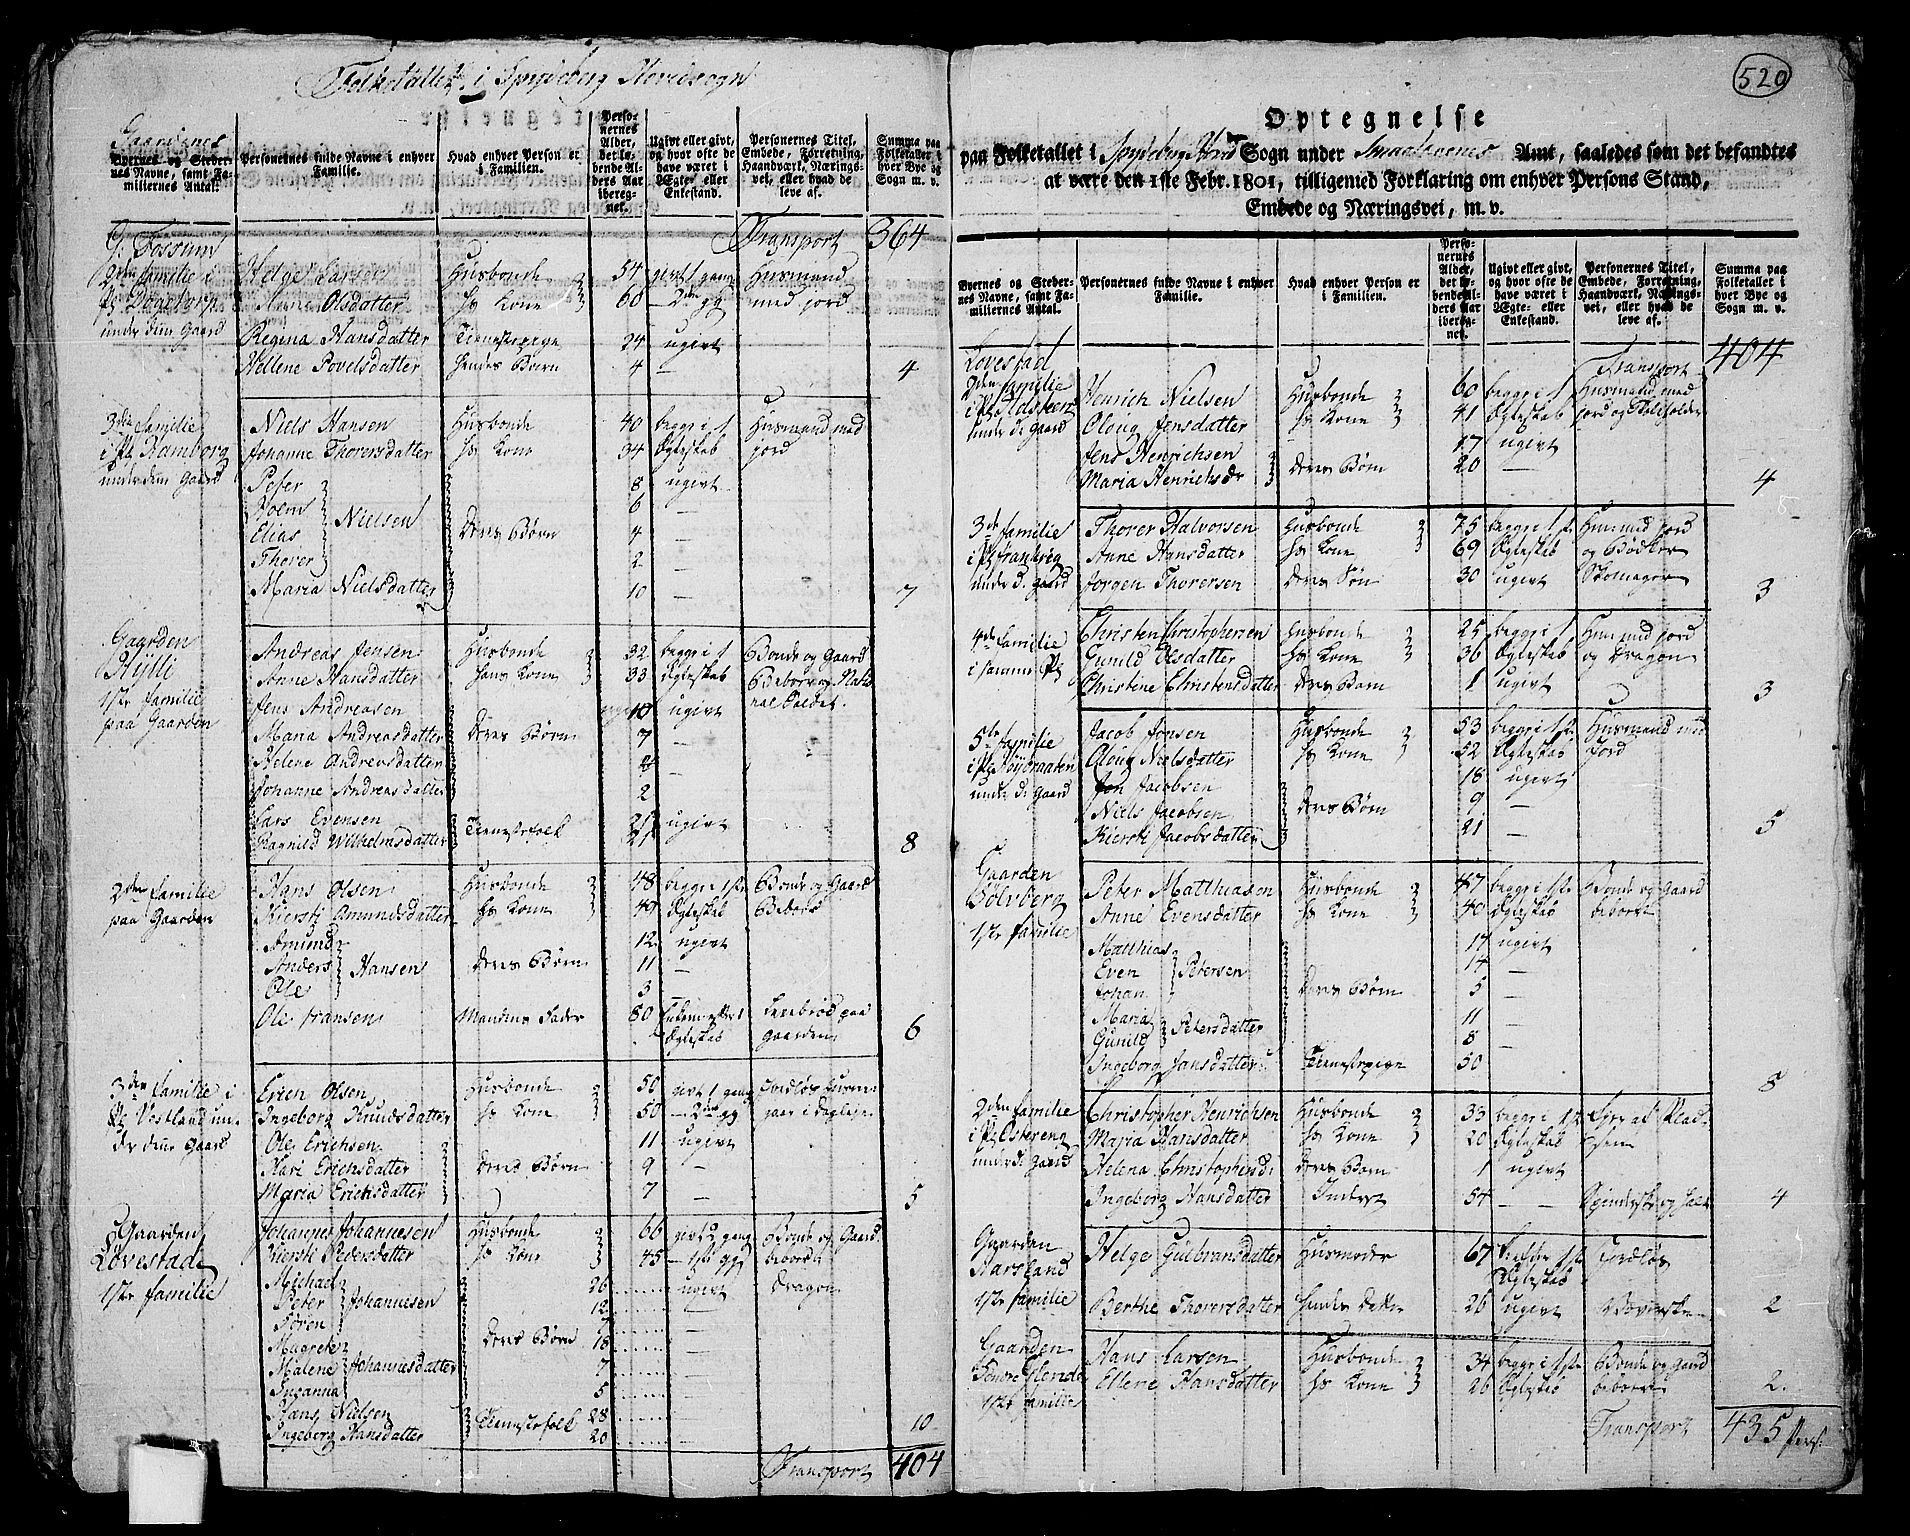 Folketallet i Spydeberg Hovedsogn
Gaardenes
Byernes og Stedernes Navne, samt Familiernes Antal.
Personernes fulde Navne i enhver Familie.
Hvad enhver Person er i Familien.
Personernes Alder, det løbende Alders Aar iberegnet.
Ugivt eller givt, og hvor ofte de have været i Ægte- eller Enkestand.
Personernes Titel, Embede, Forretning, Haandværk, Næringsvei, eller hvad de leve af.
Summa paa Folketallet i hver Bye og Sogn m. v.
G. Fossum Transport 364
2den familie i Helge Larsen Husbonde 54 givt 1 gang Husmand
Anne Olsdatter hs Kone 60 — 2den gg med jord
under dene Gaard
Regina Hansdatter Tienestepige 24 ugivt
Hellene Povelsdatter hendes Børn 4 — 4
3die familie Niels Hansen Husbonde 40 begge i 1 Husmand med
i Pl. Ramborg Johanne Thorersdatter hs Kone 34 Ægteskab jord
under dene Gaard Peter 8 ugivt
6 —
Elias Nielsen deres Børn 4 —
Thorer 2 —
Maria Nielsdatter 10 — 7
Gaarden Andreas Jensen Husbonde 32 begge i 1 Bonde og Gaard
Anne Hansdatter hans Kone 33 Ægteskab
1ste familie Jens Andreasen 10 ugivt
paa Gaarden Maria Andreasdatter deres Børn 7 —
Helene Andreasdatter —
Johanne Andreasdatter 2
Lars Evensen 21 ugivt
Ragnild Wilhelmsdatter Tienestefolk 21 8
2den familie Hans Olsen Husbonde 48 begge i 1ste Bonde og Gaard
paa Gaarden Kiersti Amundsdatter hs Kone 49 Ægteskab Beboer
Amund 12 ugivt
Anders Hansen deres Børn 11 —
Ole 3 —
Ole Hansen Mandens Fader 80 Ægteskab paa gaarden 6
3den familie i Erich Olsen Husbonde 50 givt 1 gang
Pl. Vestland un- Ingeborg Knudsdatter hs Kone 50 — 2den gg
der dene Gaard Ole Erichsen 11 ugivt
Kari Erichsdatter deres Børn 9 —
Maria Erichsdatter 7 — 5
Gaarden Johannes Johannesen Husbonde 66 givt 2 gang Bonde og Gaard
Lovestad Kiersti Pedersdatter hs Kone 45 — 1ste gg beboer
1ste familie Michael 26 ugivt dragon
Peter Johannesen 12 —
Søren 7 —
Magrete deres Børn 18 —
Malene Johannesdatter 7 —
Susanna 5 —
Hans Nielsen Tienestefolk 28 —
Ingeborg Hansdatter 20 — 10
Transport 404
520
Optegnelse
paa Folketallet i Spydeberg Hoved Sogn under Smaalenenes Amt, saaledes som det befandtes
at være den 1ste Febr. 1801, tilligemed Forklaring om enhver Persons Stand,
Embede og Næringsvei, m. v.
Byernes og Stedernes Navne, samt Familiernes Antal.
Personernes fulde Navne i enhver Familie.
Hvad enhver Person er i Familien.
Personernes Alder, det løbende Alders Aar iberegnet.
Ugivt eller givt, og hvor ofte de have været i Ægte- eller Enkestand.
Personernes Titel, Embede, Forretning, Haandværk, Næringsvei, eller hvad de leve af.
Summa paa Folketallet i hver Bye og Sogn m. v.
Lovestad Transport 404
2den familie Henrich Nielsen Husbonde 60 begge i 1 Husmand med
Oloug Jensdatter hs Kone 41 Ægteskab
under d. Gaard Jens Henrichsen 17 ugivt
Maria Henrichsdr deres Børn 20 — 4
3de familie Thorer Halvorsen Husbonde 75 begge i 1ste Hus med jord
Anne Hansdatter hs Kone 69 Ægteskab og Bødker
under d. gaard Jørgen Thorersen deres Søn 30 ugivt Skomager 3
4de familie Christen Christophersen Husbonde 25 begge i 1ste Hus med jord
i samme Pl Gunild Olsdatter hs Kone 36 Ægteskab og Dragon
Christine Christensdatter deres Barn 1 ugivt 3
5te familie Jacob Jonsen Husbonde 53 begge i 1ste Husmand med
Oloug Nielsdatter hs Kone 52 Ægteskab jord
under d. Gaard Jon Jacobsen 18 ugivt
Niels Jacobsen deres Børn 9 —
Kiersti Jacobsdatter 21 — 5
Gaarden Peter Matthiasen Husbonde 47 begge i 1ste Bonde og Gaard
Bølvberg Anne Evensdatter hs Kone 40 Ægteskab beboer
1ste familie Matthias 17 ugivt
Even Petersen 14 —
Johan deres Børn 5 —
Maria 11 —
Gunild Petersdatter 8 —
Ingeborg Jansdatter Tienestepige 50 8
2den familie Christopher Henrichsen Husbonde 33 begge i 1ste
i Pl. Østereng Maria Hansdatter hs Kone 20 Ægteskab
under d. Gaard Helena Christophersd: deres Barn 1 ugivt
Ingeborg Hansdatter Inderst 54 — 4
Gaarden Helge Gulbransdatter Husmoder 67
Karsland Ægteskab
1ste familie Berthe Thorersdatter hendes Datter 26 ugivt 2
Gaarden Hans Larsen Husbonde 34 begge i 1ste Bonde og Gaard
Ellene Hansdatter hs Kone 26 Ægteskab beboer 2.
1ste familie
Transport 435 Pers: